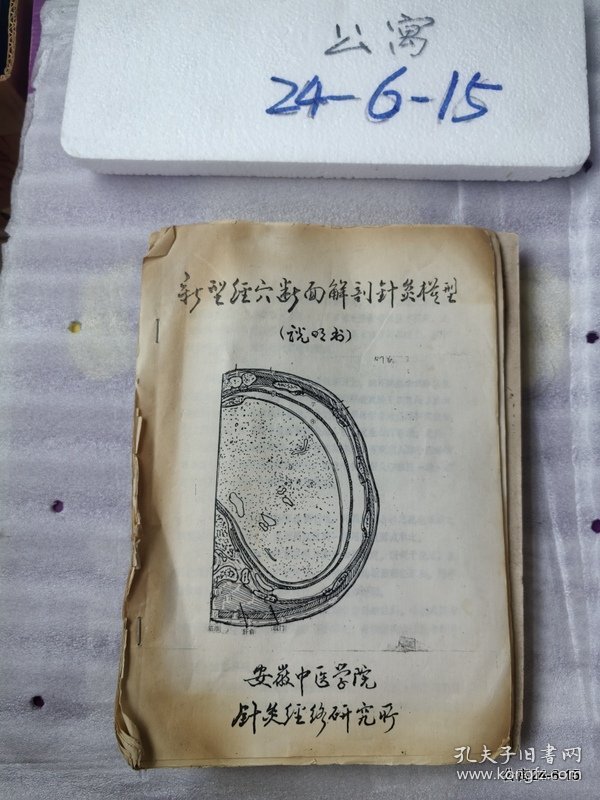 公寓
24-6-15
新型经穴断面解剖针灸模型
(说明书)
安徽中医学院
针灸经络研究所
孔夫子旧书网
www.kongfz.com